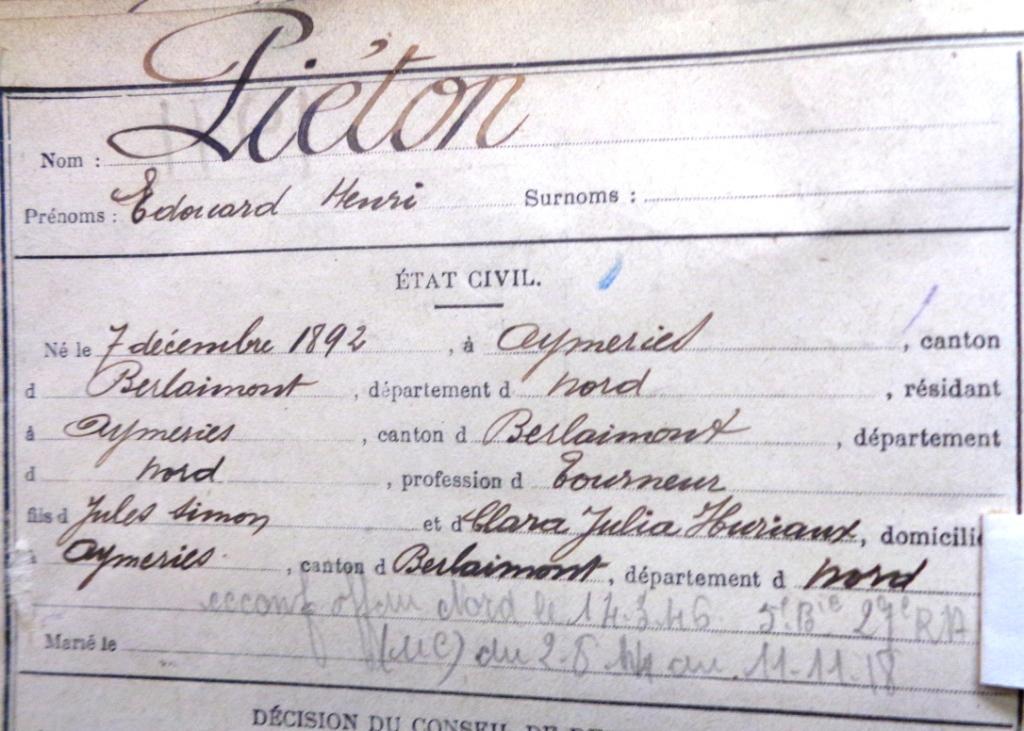 Nom : Piéton
Prénoms : Edouard Henri Surnoms :
ÉTAT CIVIL.
Né le 7 décembre 1892, à Aymeries, canton
d Berlaimont, département d Nord, résidant
à Aymeries, canton d Berlaimont, département
d Nord, profession d Tourneur
fils d Jules Simon et d Clara Julia Huriaux, domicilié
à Aymeries, canton d Berlaimont, département d Nord
Nord le 14.3.46 5e Bie 29e RA
Marié le (UC) du 2-8 14 au 11-11-18
DÉCISION DU CONSEIL DE